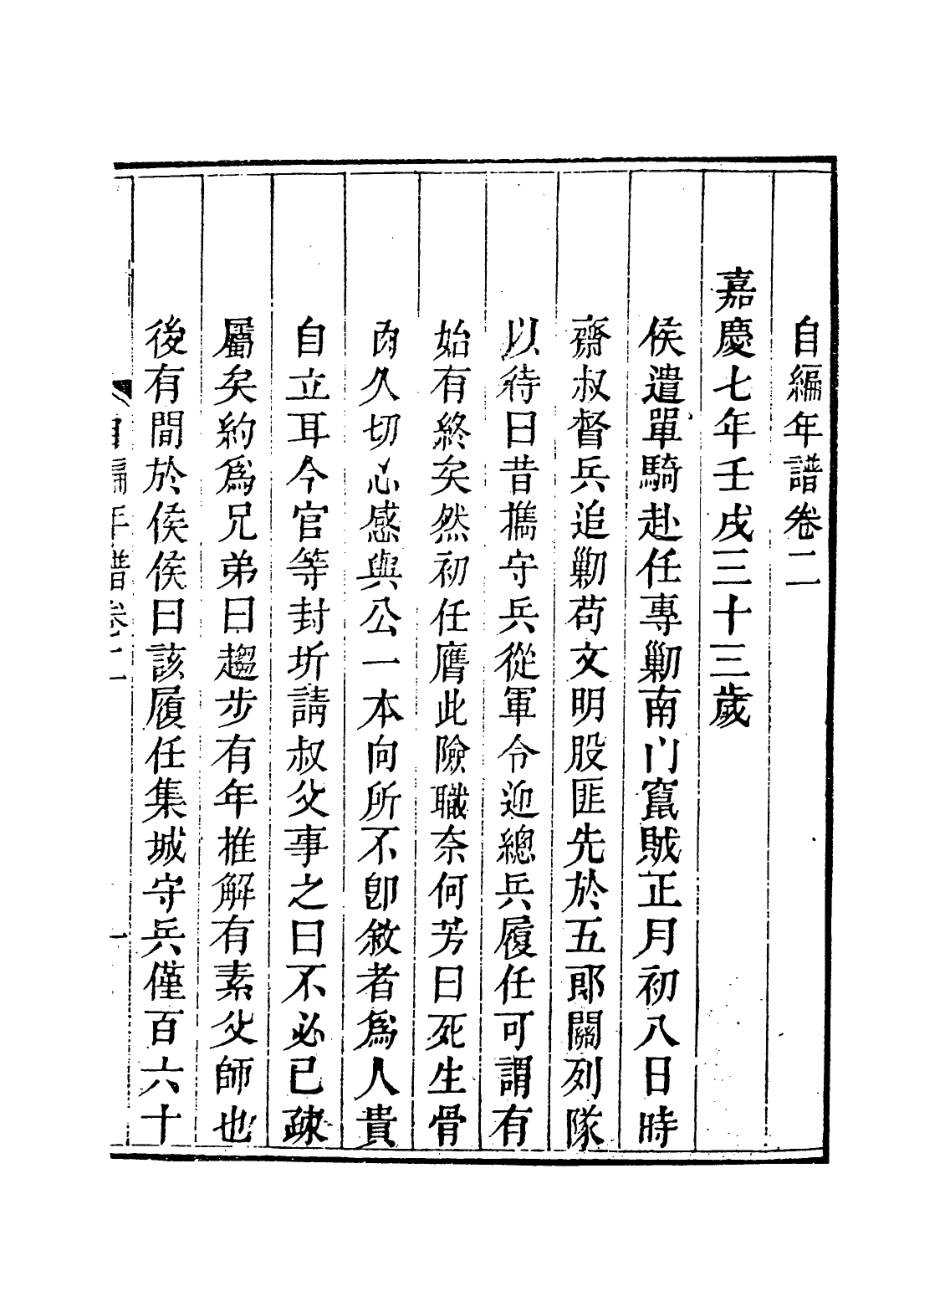 自編年譜卷二
嘉慶七年壬戌三十三歲
侯遣單騎赴任專勦南门竄賊正月初八日時
齋叔督兵追勦苟文明股匪先於五郎關列隊
以待曰昔攜守兵從軍今迎總兵履任可謂有
始有終矣然初任膺此險職奈何芳曰死生骨
肉久切心感與公一本向所不卽敘者爲人貴
自立耳今官等封圻請叔父事之曰不必已疎
屬矣約爲兄弟曰趨步有年推解有素父師也
後有間於侯侯曰該履任集城守兵僅百六十
自編年譜卷二
一